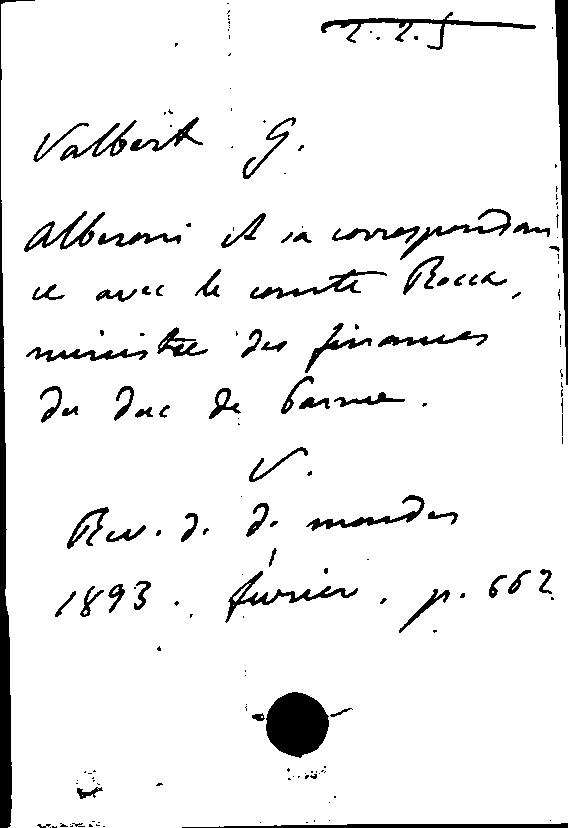 2.2.5
Valbert G.
Alberoni et sa correspondan
ce avec le comte Rocca,
ministre des finances
du duc de Parme.
V.
Rev. d. d. mondes
1893. février. p. 662